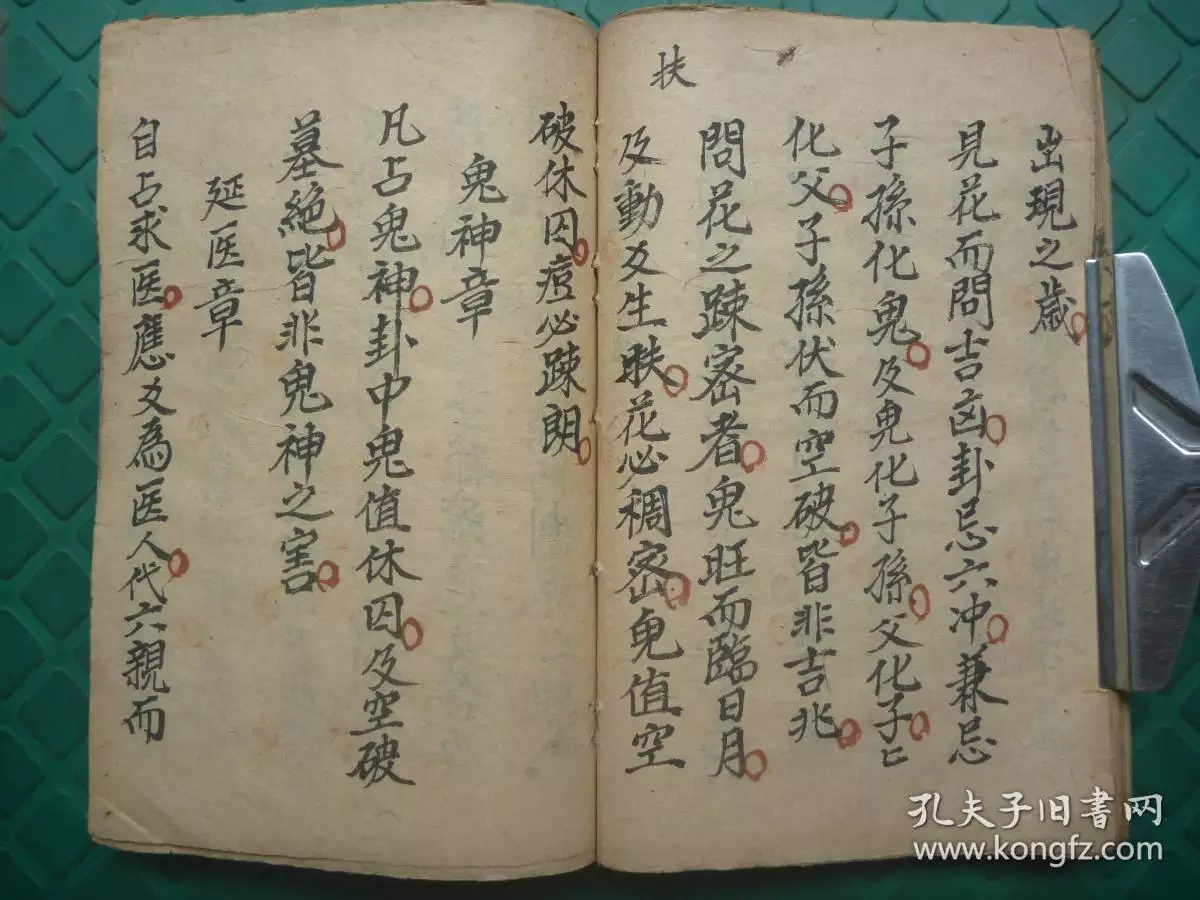 出現之歲
見花而問吉凶卦忌六冲兼忌
子孫化鬼及鬼化子孫父化子匕
化父子孫伏而空破皆非吉兆
問花之踈宻者鬼旺而臨日月
扶
及動爻生扶花必稠宻鬼值空
破休囚痘必踈朗
鬼神章
凡占鬼神卦中鬼值休囚及空破
墓絕皆非鬼神之害
延医章
自占求医應爻為医人代六親而
孔夫子旧书网
www.kongfz.com